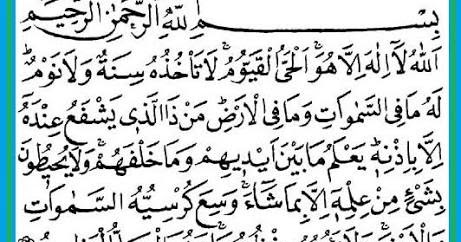 بِسْمِ اللّٰهِ الرَّحْمٰنِ الرَّحِيْمِ
اَللّٰهُ لَآ اِلٰهَ اِلَّا هُوَ ۚ اَلْحَيُّ الْقَيُّوْمُ ۚ لَا تَأْخُذُهٗ سِنَةٌ وَّلَا نَوْمٌ ؕ
لَهٗ مَا فِى السَّمٰوَاتِ وَمَا فِى الْاَرْضِ ؕ مَنْ ذَا الَّذِىْ يَشْفَعُ عِنْدَهٗٓ
اِلَّا بِاِذْنِهٖ ؕ يَعْلَمُ مَا بَيْنَ اَيْدِيْهِمْ وَمَا خَلْفَهُمْ ۚ وَلَا يُحِيْطُوْنَ
بِشَىْءٍ مِّنْ عِلْمِهٖٓ اِلَّا بِمَا شَآءَ ۚ وَسِعَ كُرْسِيُّهُ السَّمٰوَاتِ